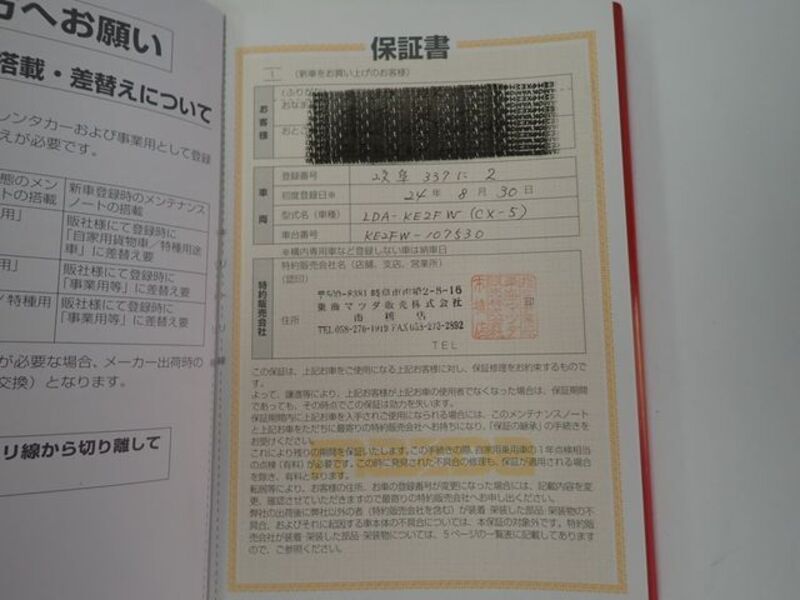 へお願い
搭載・差替えについて
レンタカーおよび事業用として登録
えが必要です。
態のメン
トの搭載
新車登録時のメンテナンス
ノートの搭載
用」
販社様にて登録時に
「自家用貨物車／特種用途
車」に差替え要
用」
販社様にて登録時に
「事業用等」に差替え要
／特種用
販社様にて登録時に
「事業用等」に差替え要
が必要な場合、メーカー出荷時の
交換）となります。
リ線から切り離して
保証書
1 （新車をお買い上げのお客様）
お客様
車両
登録番号
初度登録日※ 24年 8月 30日
型式名（車種） LDA-KE2FW (CX-5)
車台番号 KE2FW-107530
※構内専用車など登録しない車は納車日
特約販売会社
特約販売会社名（店舗、支店、営業所）
（認印）
住所
東海マツダ販売株式会社
TEL
この保証は、上記お車をご使用になる上記お客様に対し、保証修理をお約束するもので
す。
よって、譲渡等により、上記お客様が上記お車の使用者でなくなった場合は、保証期間
であっても、その時点でこの保証は効力を失います。
保証期間内に上記お車を入手されご使用になられる場合には、このメンテナンスノート
と上記お車をただちに最寄りの特約販売会社へお持ちになり、「保証の継承」の手続きを
お受けください。
これにより残りの期間を保証いたします。この手続きの際、自家用乗用車の１年点検相当
の点検（有料）が必要です。この時に発見された不具合の修理も、保証が適用される場合
を除き、有料となります。
転居等により、お客様の住所、お車の登録番号が変更になった場合には、記載内容を変
更、確認させていただきますので最寄りの特約販売会社へお申し出ください。
弊社の出荷後に弊社以外の者（特約販売会社を含む）が装着・架装した部品・架装物の不
具合、およびそれに起因する車本体の不具合については、本保証の対象外です。特約販
売会社が装着・架装した部品・架装物については、５ページの一覧表に記載してあります
ので、ご参照ください。